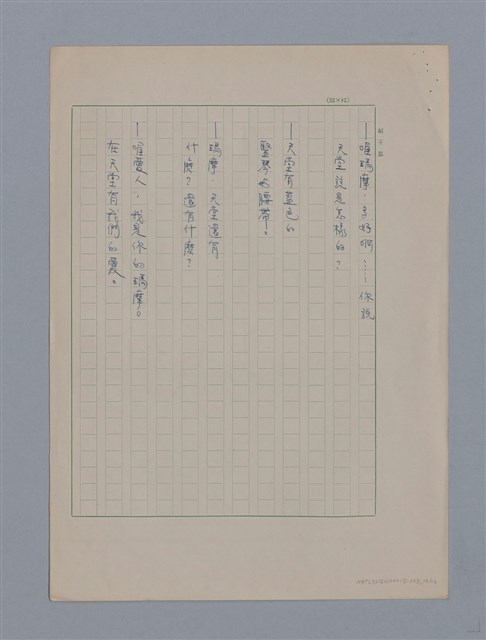 (24×25)
—喔瑪摩,多好啊……你說
天堂該是怎樣的?
—天堂有藍色的
豎琴和腰帶。
—瑪摩,天堂還有
什麼?還有什麼?
—喔愛人,我是你的瑪摩。
在天堂有我們的愛。